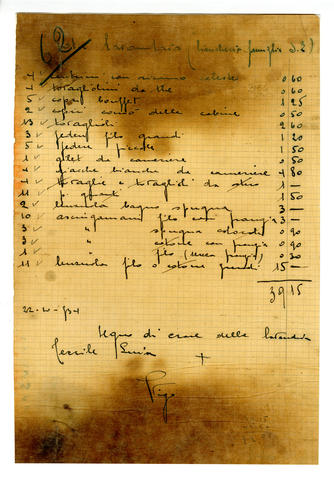 (62) Lavanderia (biancheria famiglia S.E)
4 centrini con ricamo celeste 0 60
4 tovagliolini da the 0 60
5 copri buffet 1 25
2 copri comò delle cabine 0 50
13 tovaglioli 2 60
3 federe filo grandi 1 20
5 federe piccole 1 50
1 gilet da cameriere 0 50
4 giacche bianche da cameriere 4 80
4 tovaglie e tovaglioli da 1 —
11 guanti 1 50
2 lenzuola bagno spugna 3 —
10 asciugamani filo con frangia 3 —
3 " spugna colorati 0 90
3 " cotone con frangia 0 90
1 " filo (senza frangia) 0 30
11 lenzuola filo e cotone grandi 15 —
39 15
22-10-
Segno di croce della lavandaia
Luisa +